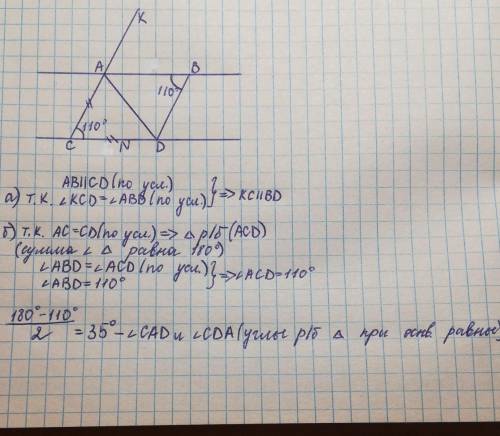 K
A B
110°
110°
C N D
AB||CD (по усл.)
а) т.к. ∠KCD=∠ABD (по усл) } => KC||BD
б) т.к. AC=CD (по усл) => △ р/б (ACD)
(сумма ∠ △ равна 180°)
∠ABD=∠ACD (по усл)
∠ABD=110° } => ∠ACD=110°
180°-110°
2 =35° - ∠CAD и ∠CDA (углы р/б △ при осн. равны)